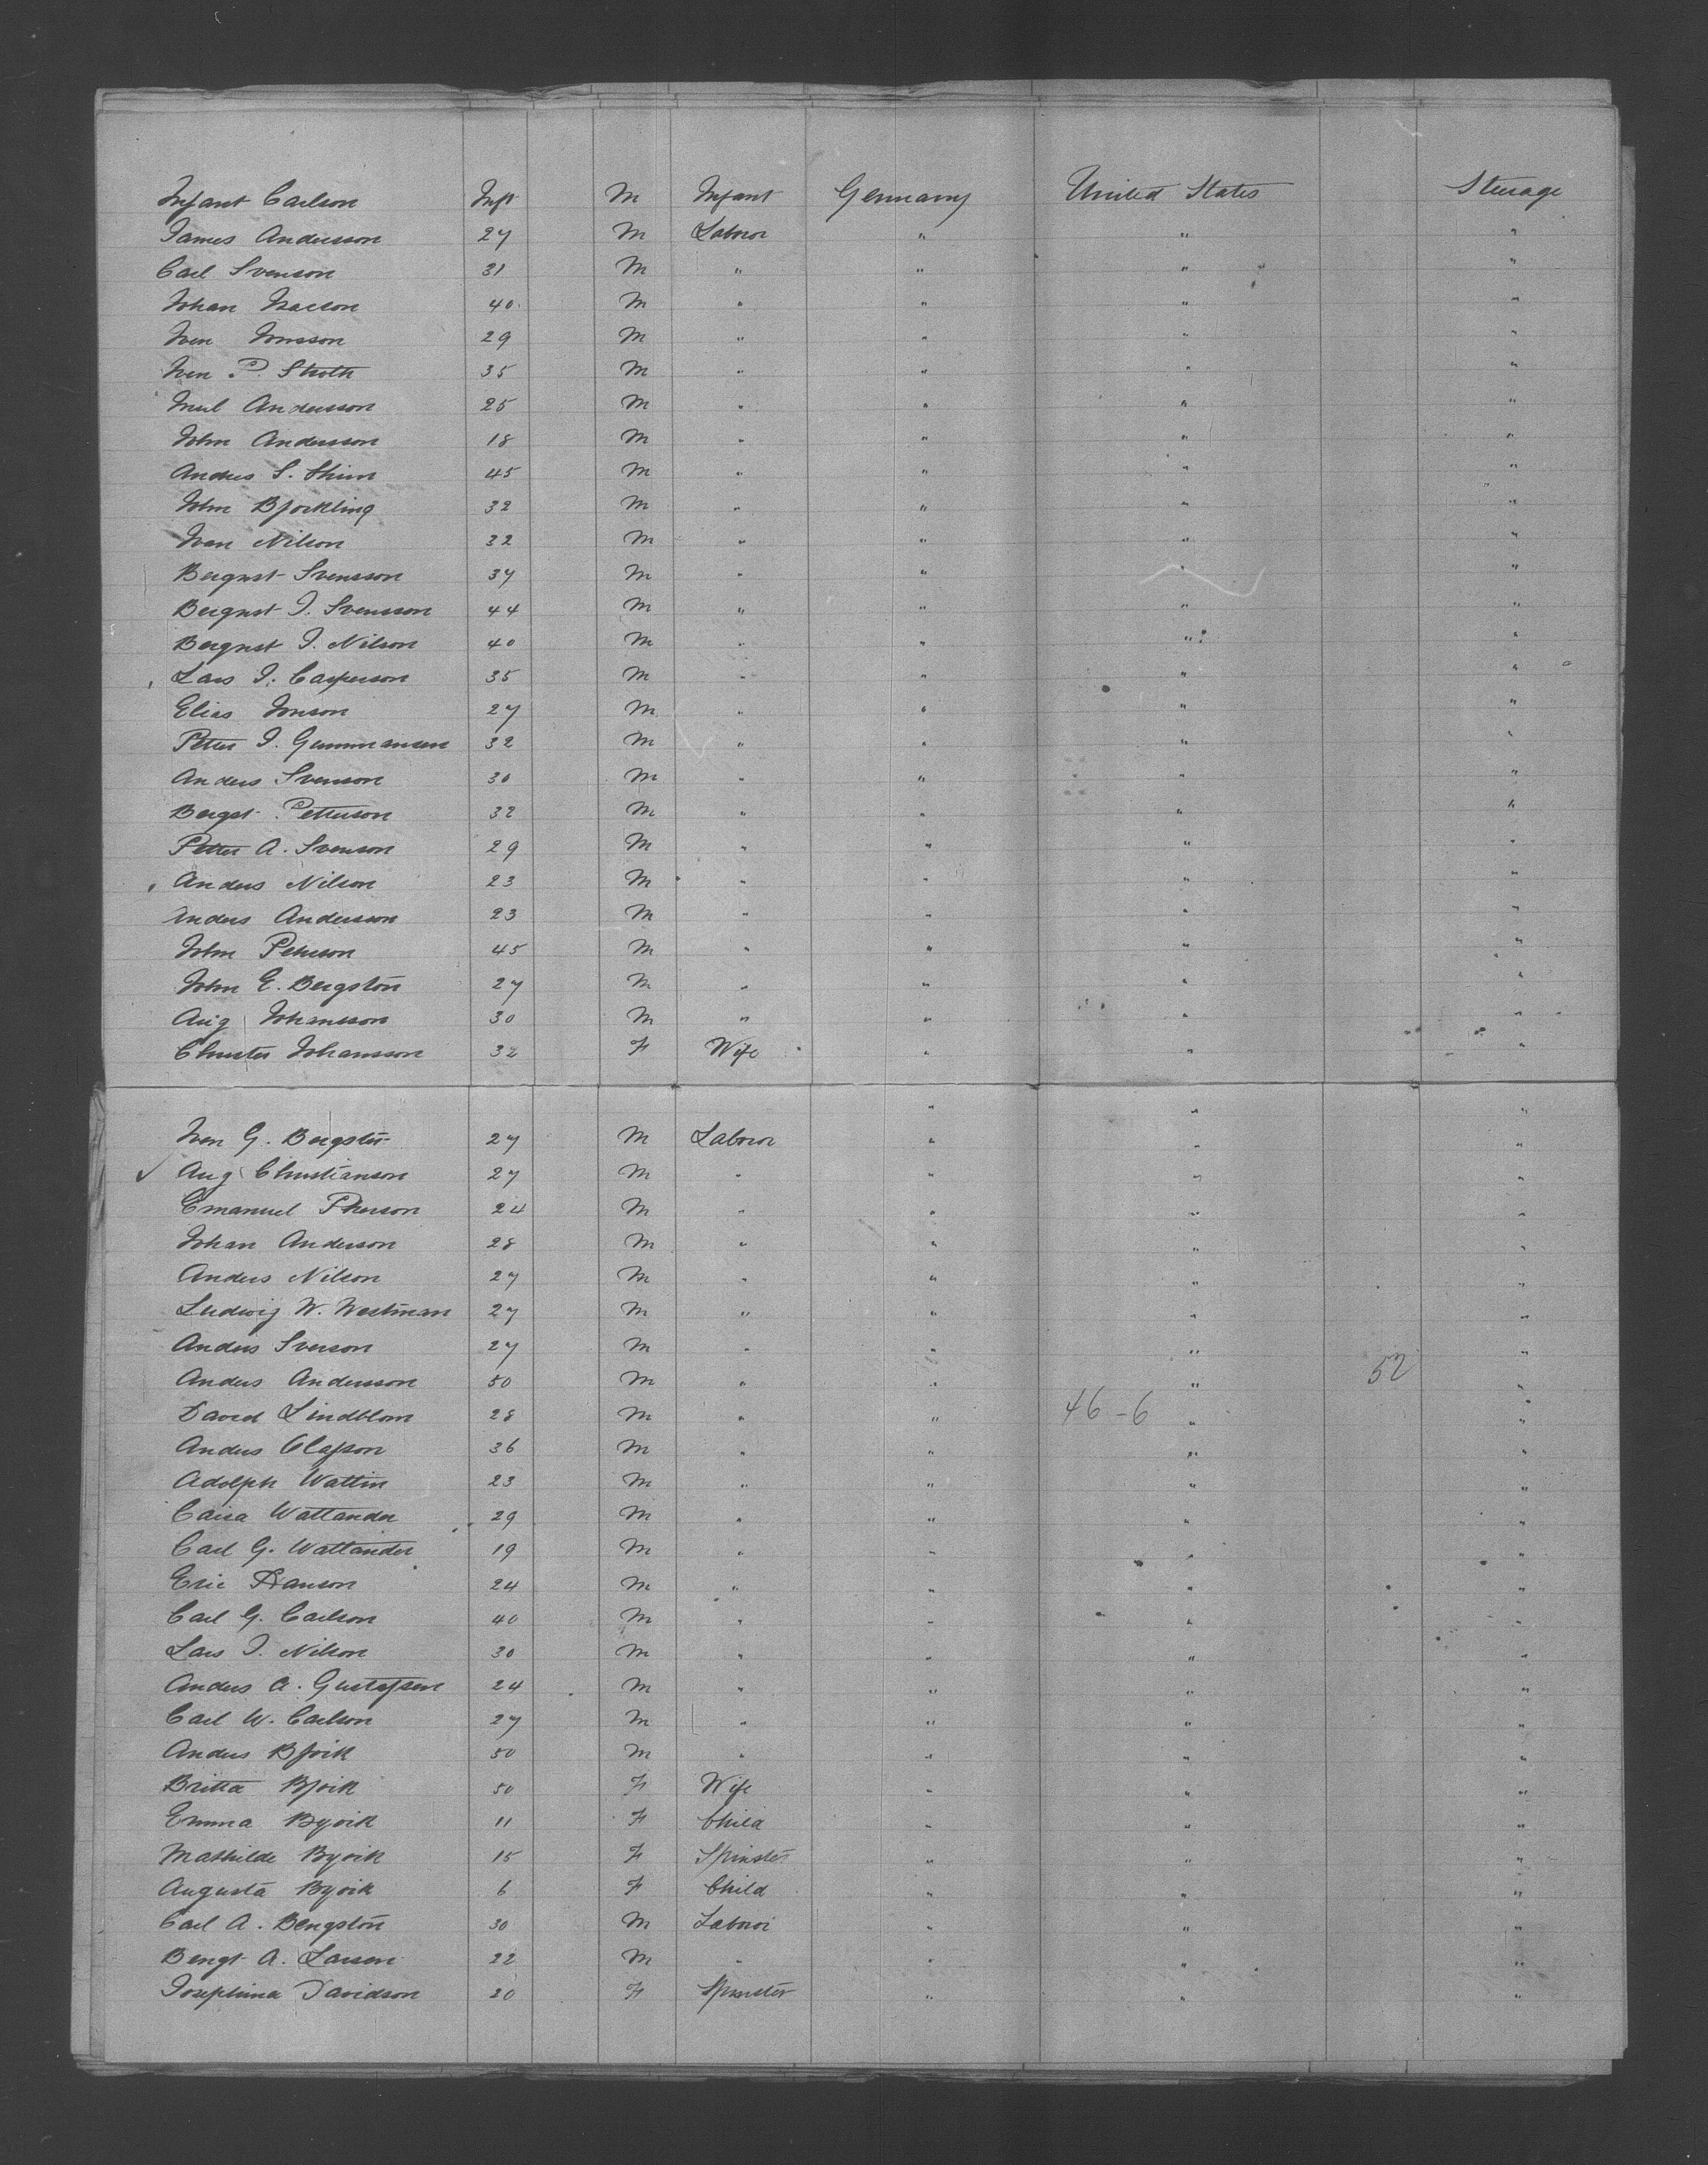 Infant Carlson Inft M Infant Germany United States Steerage
James Andersson 27 M Labour " " "
Carl Svenson 31 M " " " "
Johan Isacson 40 M " " " "
Iven Jonsson 29 M " " " "
Iven P. Stroth 35 M " " " "
Andersson 25 M " " " "
John Andersson 18 M " " " "
Anders S. 45 M " " " "
John Bjorkling 32 M " " " "
Ivan Nilson 32 M " " " "
Bergnst Svensson 37 M " " " "
Bergnst J. Svensson 44 M " " " "
Bergnst J. Nilson 40 M " " " "
Lars J. Casperson 35 M " " " "
Elias Jonson 27 M " " " "
Petter J. Gummansen 32 M " " " "
Anders Svenson 30 M " " " "
Bergst Petterson 32 M " " " "
Petter A. Svenson 29 M " " " "
Anders Nilson 23 M " " " "
Anders Anderson 23 M " " " "
John Peterson 45 M " " " "
John E. Bergston 27 M " " " "
Aug Johansson 30 M " " " "
Christer Johansson 32 F Wife " " "
" " "
Iven G. Bergster 27 M Labour " " "
Aug Christianson 27 M " " " "
Emanuel Pherson 24 M " " " "
Johan Anderson 28 M " " " "
Anders Nilson 27 M " " " "
Ludwig W. Westman 27 M " " " "
Anders Svenson 27 M " " " "
Anders Andersson 50 M " " " 52 "
David Lindblom 28 M " " 46-6 " "
Anders Olafson 36 M " " " "
Adolph Wattin 23 M " " " "
Caisa Wattander 29 M " " " "
Carl G. Wattander 19 M " " " "
Eric Franson 24 M " " " "
Carl G. Carlson 40 M " " " "
Lars J. Nilson 30 M " " " "
Anders A. Gustafsen 24 M " " " "
Carl W. Carlson 27 M " " " "
Anders Bjork 50 M " " " "
Britta Bjork 50 F Wife " " "
Emma Byork 11 F Child " " "
Mathilde Byork 15 F Spinster " " "
Augusta Byork 6 F Child " " "
Carl A. Bengston 30 M Labour " " "
Bengt A. Larsen 22 M " " " "
Josephina Davidson 20 F Spinster " " "